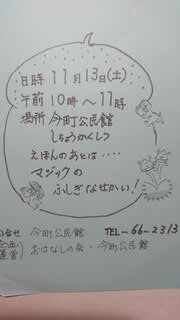 日時 11月13日(土)
午前 10時〜11時
場所 今町公民館
しちょうかくしつ
えほんのあとは・・・・
マジックの
ふしぎなせかい!
今町公民館 TEL-66-2313
運営 おはなしの会・・・・